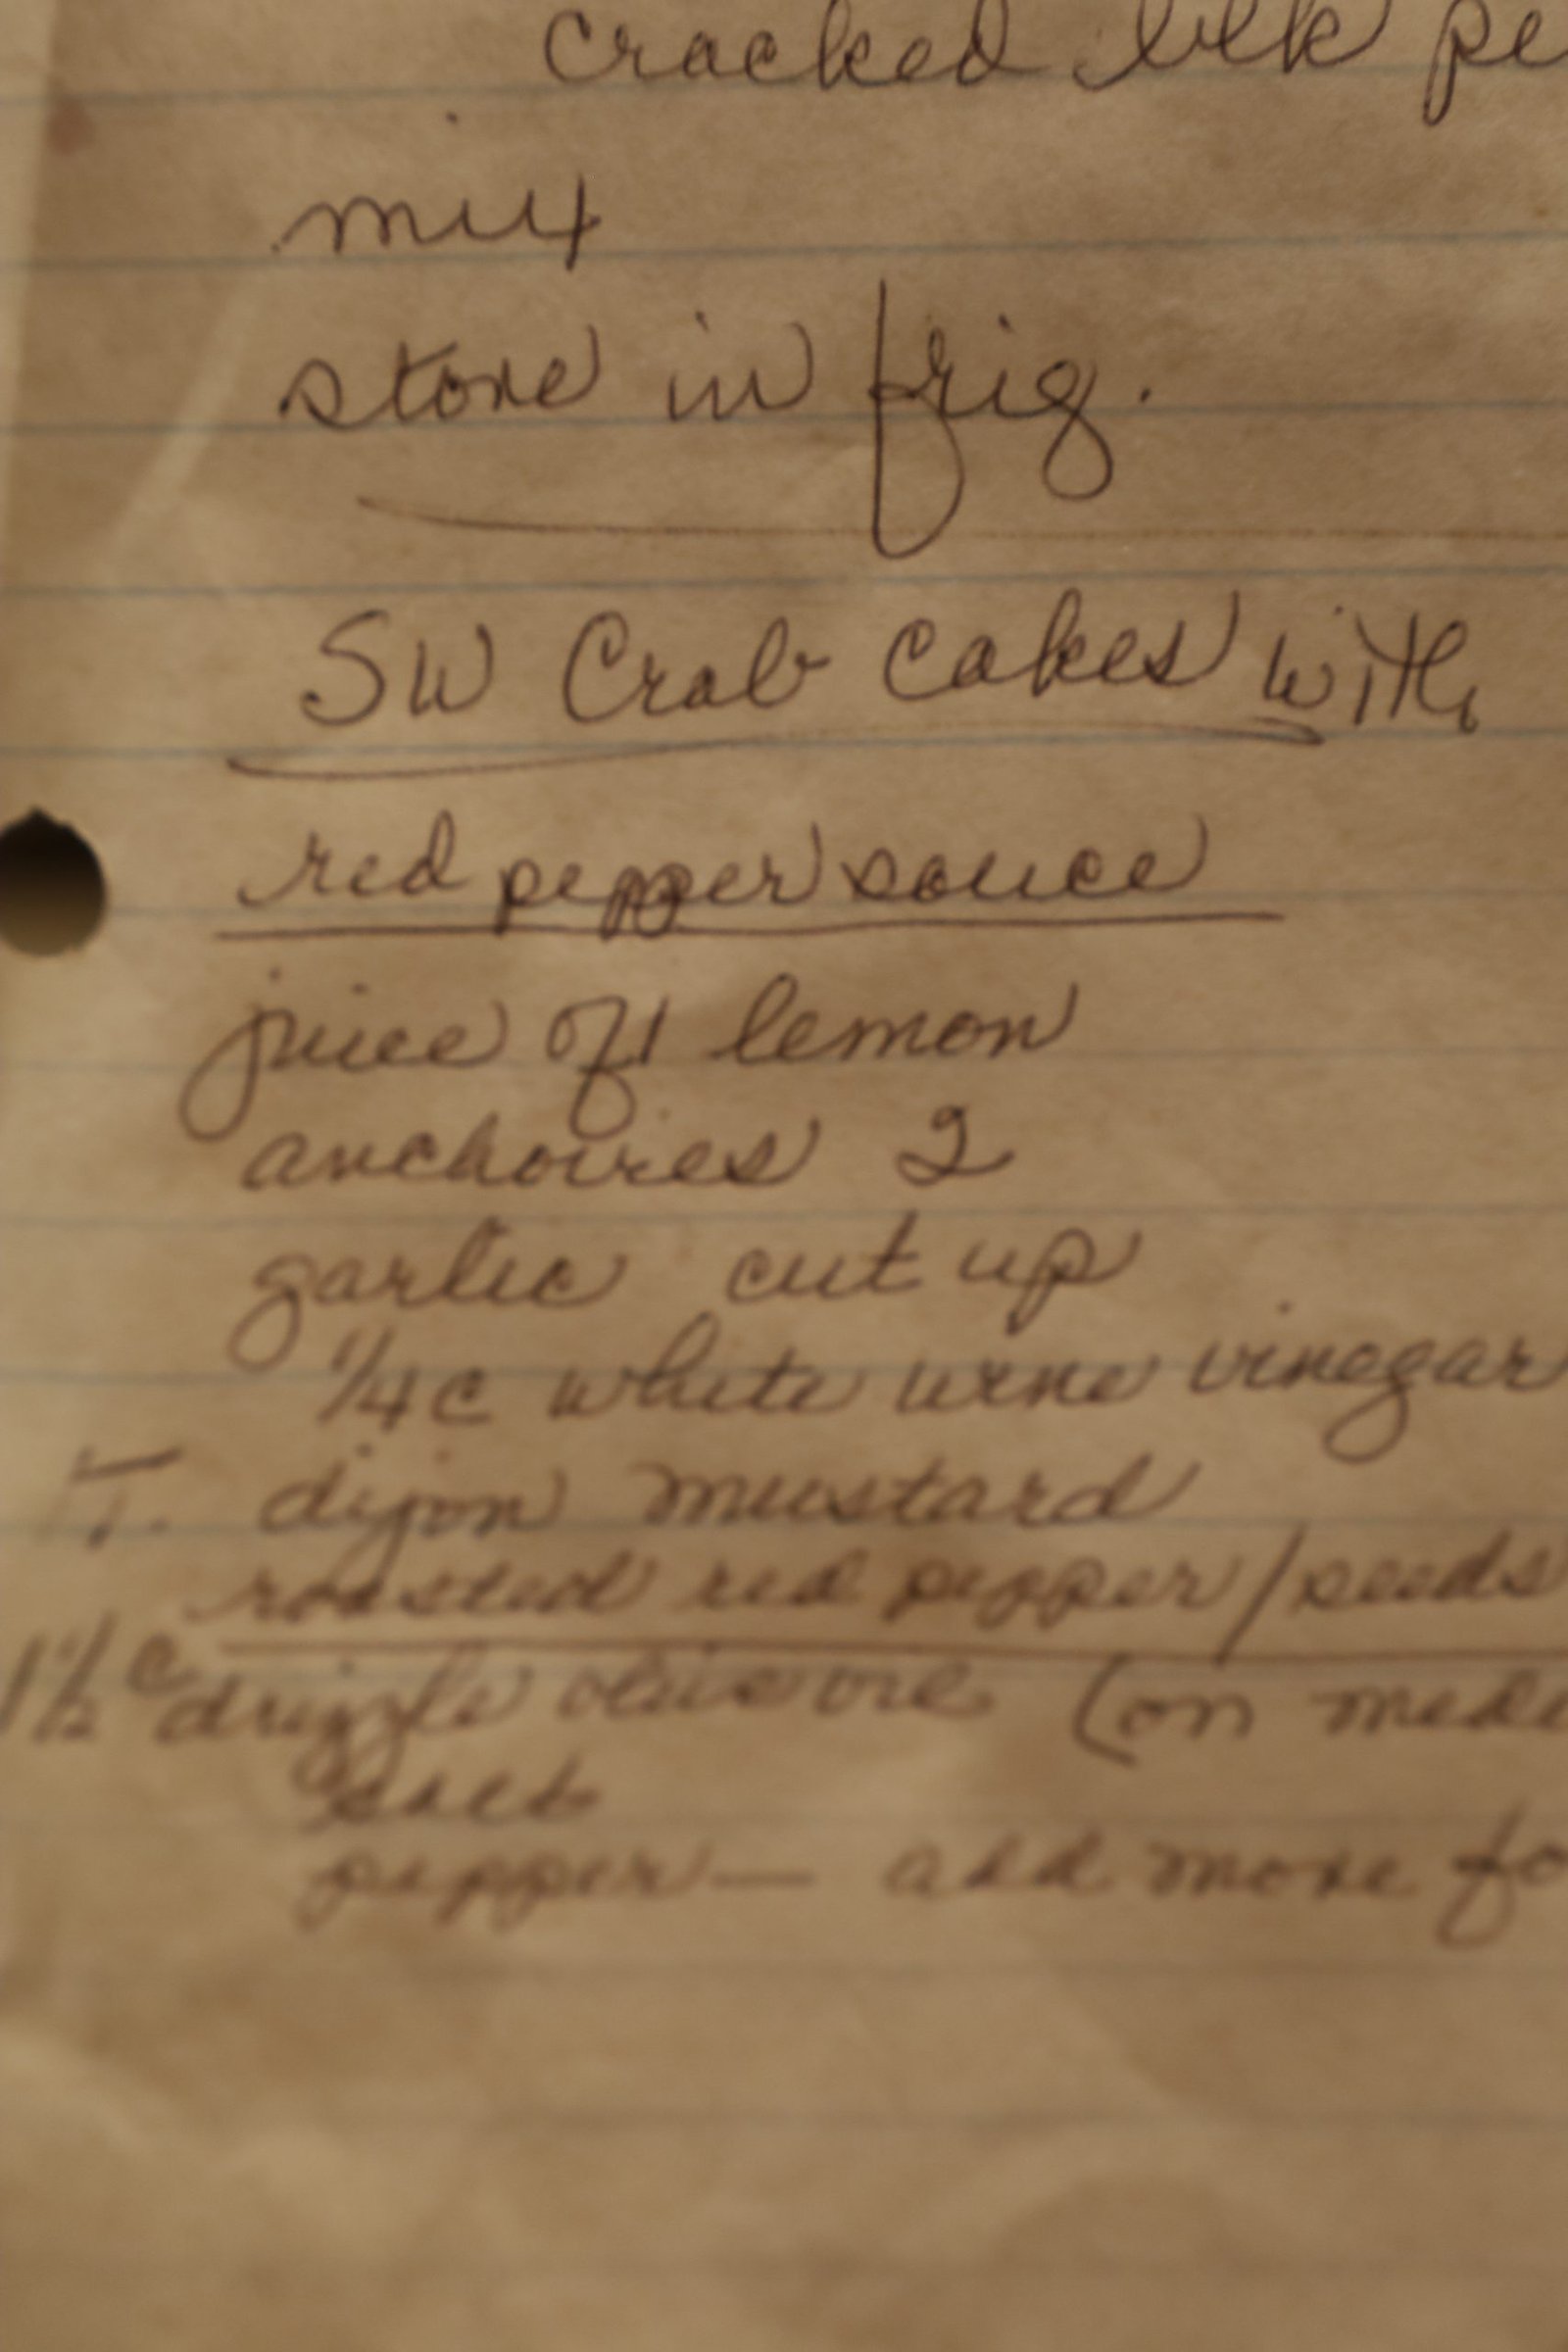 cracked blk pe
mix
store in frig.
SW Crab Cakes with
red pepper sauce
juice of 1 lemon
anchovies 2
garlic cut up
1/4 c white wine vinegar
T. dijon mustard
roasted red pepper/seeds
1 1/2 c drizzle olive oil (on med
salt
pepper — add more fo